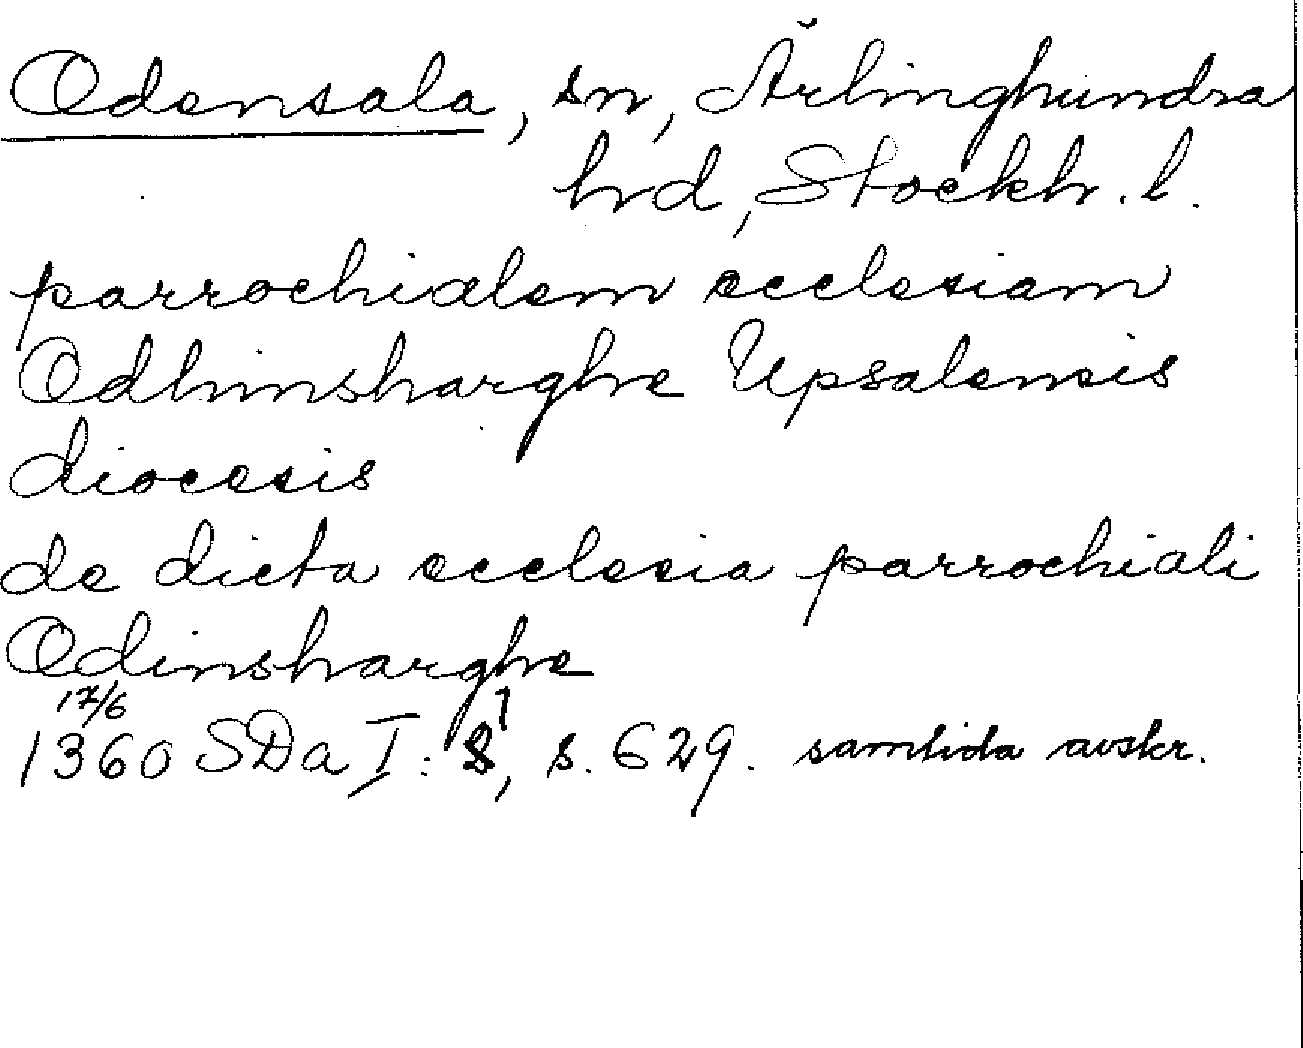 Odensala, sn, Ärlinghundra
hd, Stockh. l.
parrochialem ecclesiam
Odhinsharghe Upsalensis
diocesis
de dicta ecclesia parrochiali
Odinsharghe
17/6
1360 SDa I: 1, s. 629. samtida avskr.